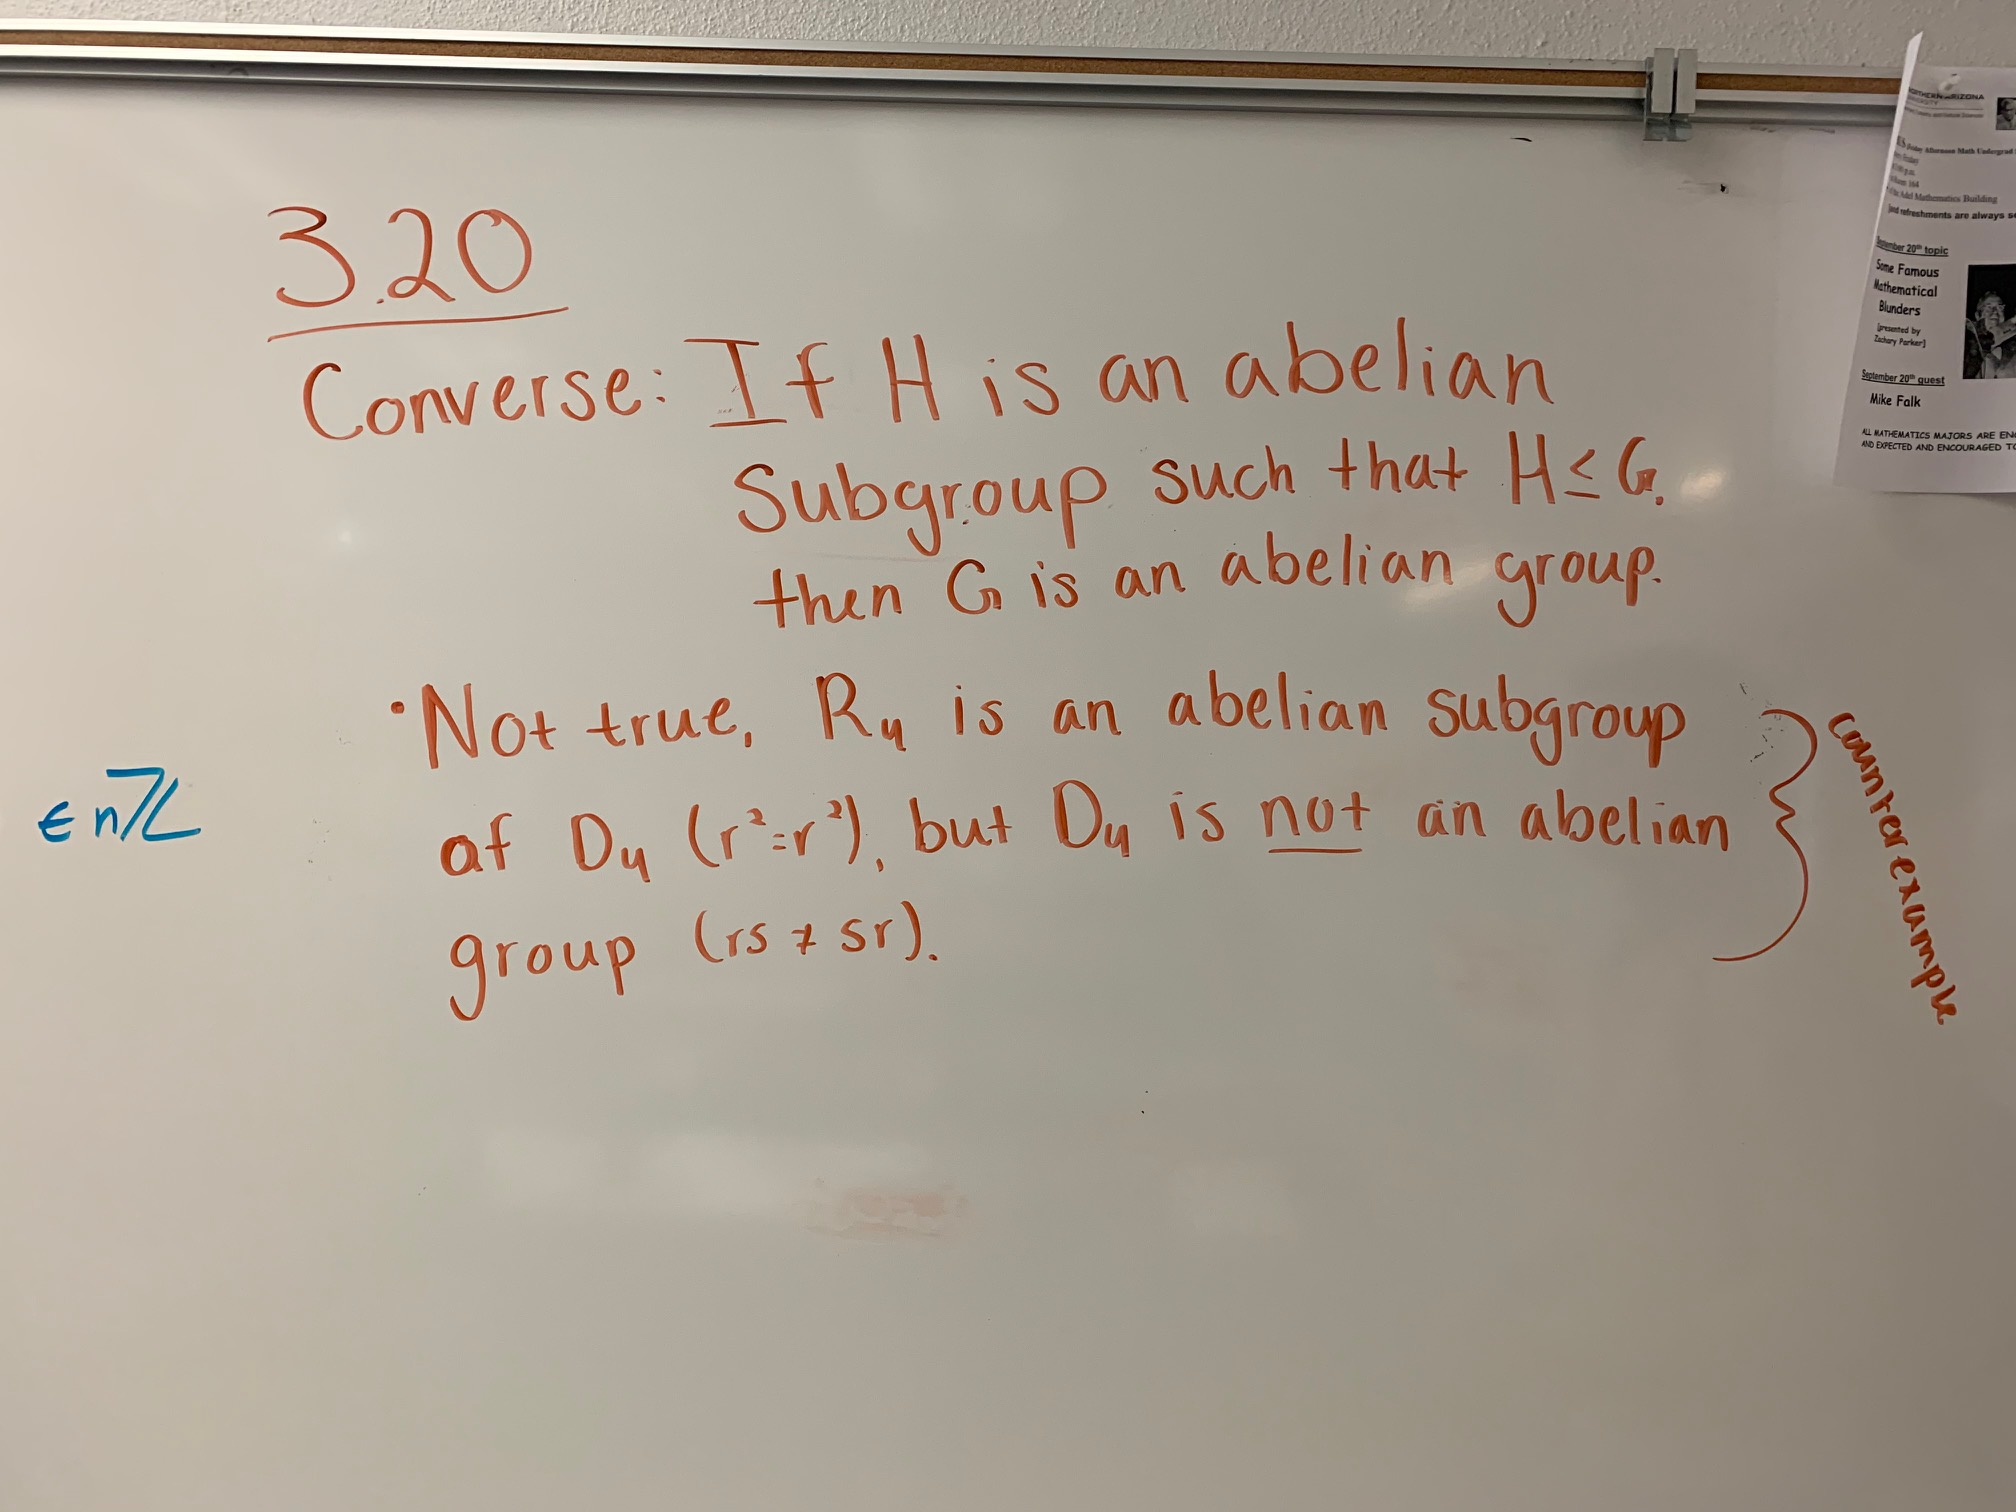 3.20
Converse: If H is an abelian
Subgroup such that H ≤ G,
then G is an abelian group.
• Not true, R₄ is an abelian subgroup
of D₄ (r²=r²), but D₄ is not an abelian
group (rs ≠ sr).
counterexample
∈ nℤ
NORTHERN ARIZONA
Afternoon Math Undergrad
Friday
p.m.
Room 164
Adel Mathematics Building
and refreshments are always
September 20th topic
Some Famous
Mathematical
Blunders
[presented by
Zachary Parker]
September 20th guest
Mike Falk
ALL MATHEMATICS MAJORS ARE
AND EXPECTED AND ENCOURAGED TO